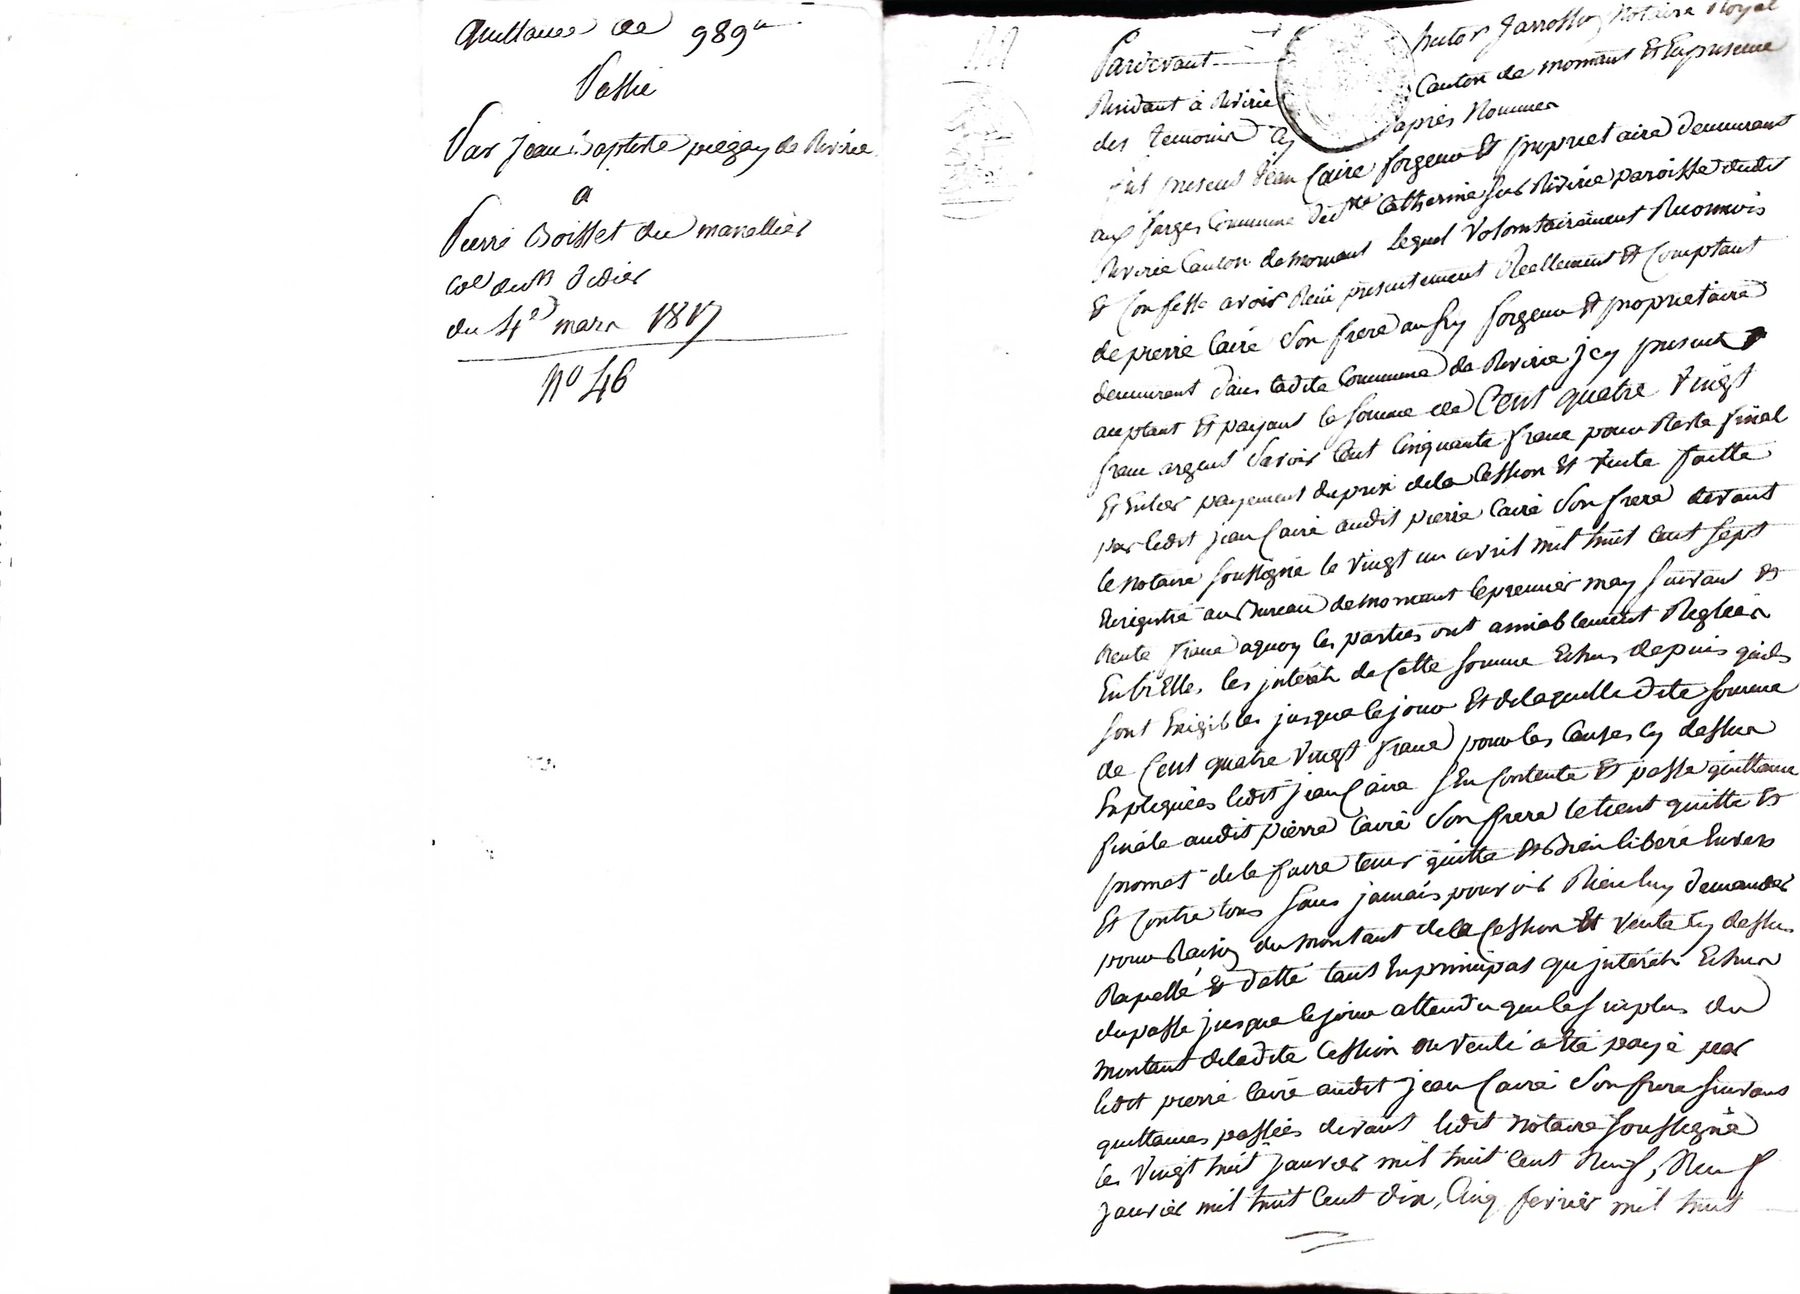 quittance de 989ᶠ
Passée
Par Jean Baptiste piegay de Riverie
a
Pierre Boisset du manellier
Cᵉ de Sᵗ Didier
du 4ᵉ mars 1817
Nº 46
Pardevant hector Jarrosson Notaire Royal
Residant à Riverie Canton de mornant Et En presence
des temoins cy après Nommés
fut present Jean Caire forgeur Et proprietaire demeurant
aux forges Commune de Sᵗᵉ Catherine sur Riverie paroisse dudit
Riverie Canton de mornant Lequel Volontairement Reconnois
Et Confesse avoir Reçu presentement Reellement Et Comptant
de pierre Caire Son frere aussy forgeur Et proprietaire
demeurant dans ladite Commune de Riverie jcy present
acceptant Et payant la somme de Cent quatre Vingt
franc argent Savoir Cent Cinquante franc pour Reste final
Et Entier payement du prix de la Cession Et Vente faitte
par ledit jean Caire audit pierre Caire Son frere devant
le Notaire soussigné le vingt un avril mil huit cent sept
Enregistré au Bureau de mornant le premier may suivant Et
trente franc aquoy les parties ont amiablement Regleés
EntrElles les jnteréts de Cette somme Echus depuis qu'ils
sont Exigibles jusque ce jour Et de laquelle dite somme
de Cent quatre Vingt franc pour les Causes cy dessus
Expliquées ledit jean Caire s'En Contente Et passe quittance
finale audit pierre Caire Son frere le tient quitte Et
promet de le faire tenir quitte Et Bien liberé Envers
Et Contre tous sans jamais pouvoir Rien luy demander
pour Raison du Montant de la Cession Et Vente cy dessus
Rapellé Et datté tant En principal qu'jnteréts Echus
du passé jusque ce jour attendu que le surplus du
Montant de ladite Cession ou Vente a Eté payé par
ledit pierre Caire audit jean Caire Son frere suivant
quittances passées devant ledit Notaire soussigné
les Vingt huit Janvier mil huit Cent Neuf, Neuf
Janvier mil huit Cent dix, Cinq fevrier mil huit